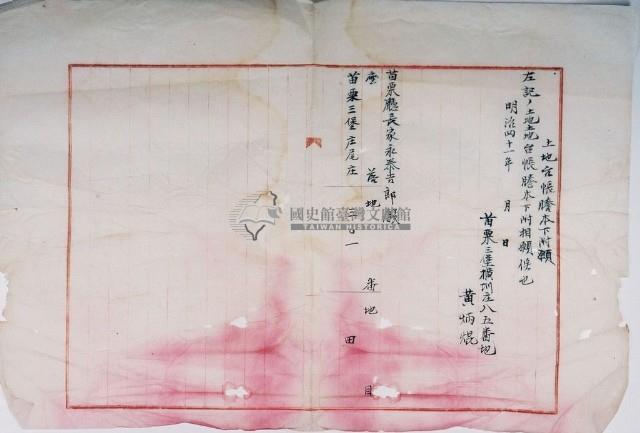 土地台帳謄本下附願
左記ノ土地土地台帳謄本下附相願候也
明治四十一年　月　日
苗栗三堡橫圳庄八五番地
黃炳焜
苗栗廳長家永泰吉郎殿
庄　落地　番地　目
苗栗三堡庄尾庄　一　田
國史館臺灣文獻館
TAIWAN HISTORICA